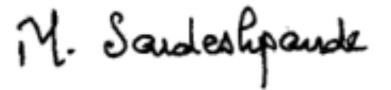 M. Sardeshpande